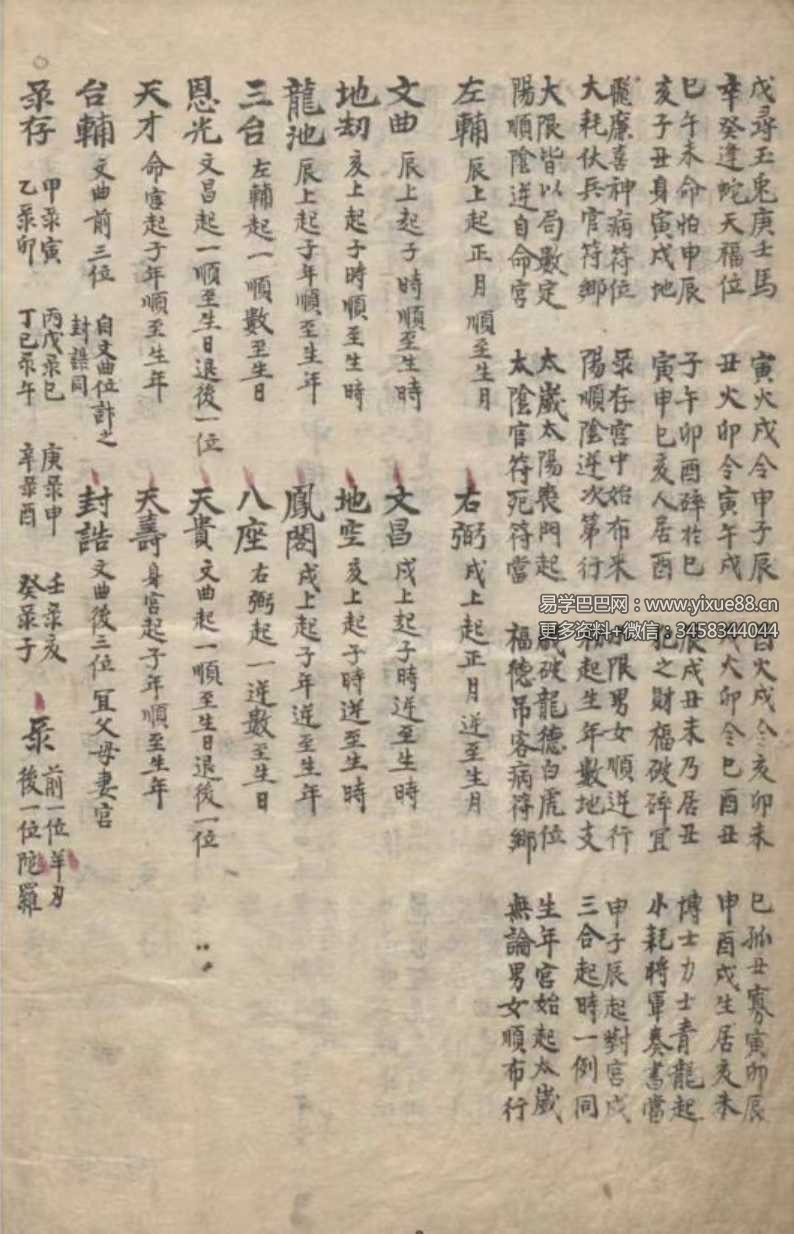 戊尋玉兔庚壬馬 寅火戌令申子辰 酉火戌令亥卯未 巳孤丑寡寅卯辰
辛癸逢蛇天福位 丑火卯令寅午戌 戌火卯令巳酉丑 申酉戌生居亥未
巳午未命怕申辰 子午卯酉碎於巳 辰戌丑未乃居丑 博士力士青龍起
亥子丑身寅戌地 寅申巳亥人居酉 犯之財福破碎宜 小耗將軍奏書當
飛廉喜神病符位 彔存宮中始布來 限男女順逆行 申子辰起對宮戌
大耗伏兵官符鄉 陽順陰逆次第行 起生年數地支 三合起時一例同
大限皆以局數定 太歲太陽喪門起 歲破龍德白虎位 生年宮始起太歲
陽順陰逆自命宮 太陰官符死符當 福德吊客病符鄉 無論男女順布行
左輔 辰上起正月順至生月 右弼 戌上起正月逆至生月
文曲 辰上起子時順至生時 文昌 戌上起子時逆至生時
地刼 亥上起子時順至生時 地空 亥上起子時逆至生時
龍池 辰上起子年順至生年 鳳閣 戌上起子年逆至生年
三台 左輔起一順數至生日 八座 右弼起一逆數至生日
恩光 文昌起一順至生日退後一位 天貴 文曲起一順至生日退後一位
天才 命宮起子年順至生年 天壽 身宮起子年順至生年
台輔 文曲前三位 自文曲位計之 封誥同 封誥 文曲後三位 宜父母妻宮
彔存 甲彔寅 乙彔卯 丙戊彔巳 丁己彔午 庚彔申 辛彔酉 壬彔亥 癸彔子 彔 前一位羊刃 後一位陀羅
易学巴巴网：www.yixue88.cn
更多资料+微信：3458344044